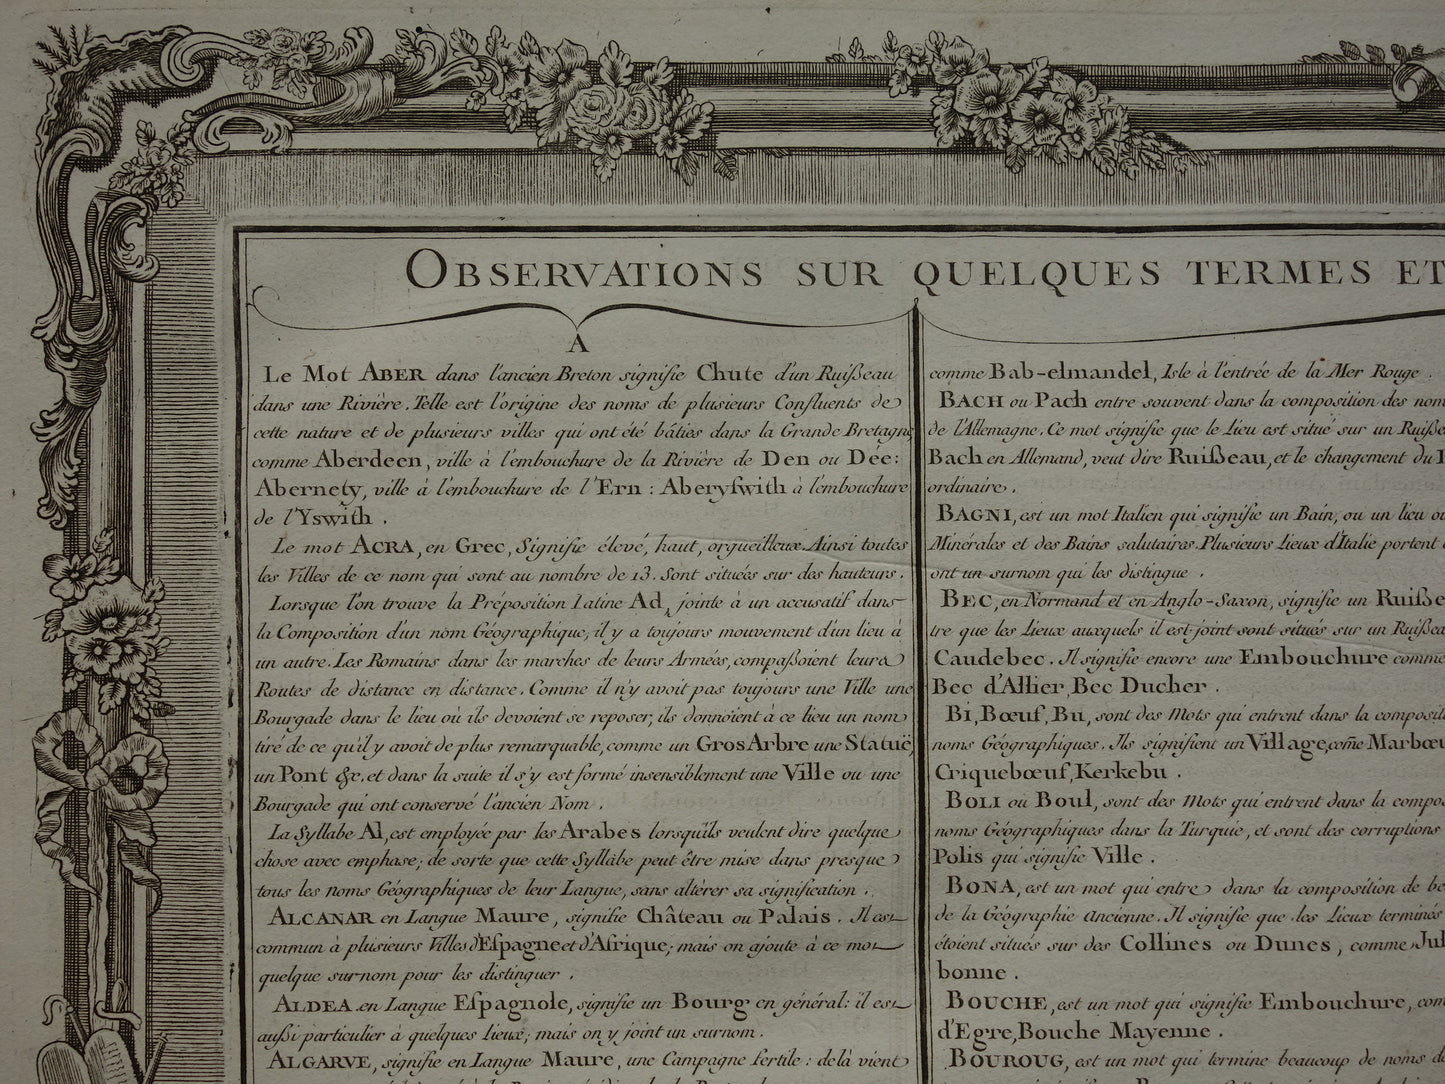 OBSERVATIONS SUR QUELQUES TERMES ET
A
Le Mot ABER dans l'ancien Breton signifie Chute d'un Ruißeau
dans une Rivière. Telle est l'origine des noms de plusieurs Confluents de
cette nature et de plusieurs villes qui ont été bâties dans la Grande Bretagne
comme Aberdeen, ville à l'embouchure de la Rivière de Den ou Dée:
Abernety, ville à l'embouchure de l'Ern: Aberyswith à l'embouchure
de l'Yswith.
Le mot ACRA, en Grec, Signifie élevé, haut, orgueilleux. Ainsi toutes
les Villes de ce nom qui sont au nombre de 13. Sont situées sur des hauteurs.
Lorsque l'on trouve la Préposition Latine Ad, jointe à un accusatif dans
la Composition d'un nom Géographique, il y a toujours mouvement d'un lieu à
un autre. Les Romains dans les marches de leurs Armées, compaßoient leurs
Routes de distance en distance. Comme il n'y avoit pas toujours une Ville une
Bourgade dans le lieu où ils devoient se reposer, ils donnoient à ce lieu un nom
tiré de ce qu'il y avoit de plus remarquable, comme un Gros Arbre une Statuë,
un Pont &c. et dans la suite il s'y est formé insensiblement une Ville ou une
Bourgade qui ont conservé l'ancien Nom.
La Syllabe Al, est employée par les Arabes lorsqu'ils veulent dire quelque
chose avec emphase; de sorte que cette Syllabe peut être mise dans presque
tous les noms Géographiques de leur Langue, sans altérer sa signification.
ALCANAR en Langue Maure, signifie Château ou Palais. Il est
commun à plusieurs Villes d'Espagne et d'Afrique; mais on ajoute à ce mot
quelque surnom pour les distinguer.
ALDEA en Langue Espagnole, signifie un Bourg en général: il est
außi particulier à quelques lieux; mais on y joint un surnom.
ALGARVE, signifie en Langue Maure, une Campagne fertile: de là vient
comme Bab-elmandel, Isle à l'entrée de la Mer Rouge.
BACH ou Pach entre souvent dans la composition des nom
de l'Allemagne. Ce mot signifie que le Lieu est situé sur un Ruiße
Bach en Allemand, veut dire Ruißeau, et le changement du
ordinaire.
BAGNI, est un mot Italien qui signifie un Bain, ou un lieu o
Minérales et des Bains salutaires. Plusieurs Lieux d'Italie portent
ont un surnom qui les distingue.
BEC, en Normand et en Anglo-Saxon, signifie un Ruiße
tre que les Lieux auxquels il est joint sont situés sur un Ruißea
Caudebec. Il signifie encore une Embouchure comme
Bec d'Allier, Bec Ducher.
Bi, Bœuf, Bu, sont des Mots qui entrent dans la composit
noms Géographiques. Ils signifient un Village, come Marbœu
Criquebœuf, Kerkebu.
BOLI ou Boul, sont des Mots qui entrent dans la compo
noms Géographiques dans la Turquie, et sont des corruptions
Polis qui signifie Ville.
BONA, est un mot qui entre dans la composition de be
de la Géographie ancienne. Il signifie que les Lieux terminés
étoient situés sur des Collines ou Dunes, comme Jul
bonne.
BOUCHE, est un mot qui signifie Embouchure, com
d'Egre, Bouche Mayenne.
BOUROUG, est un mot qui termine beaucoup de noms d